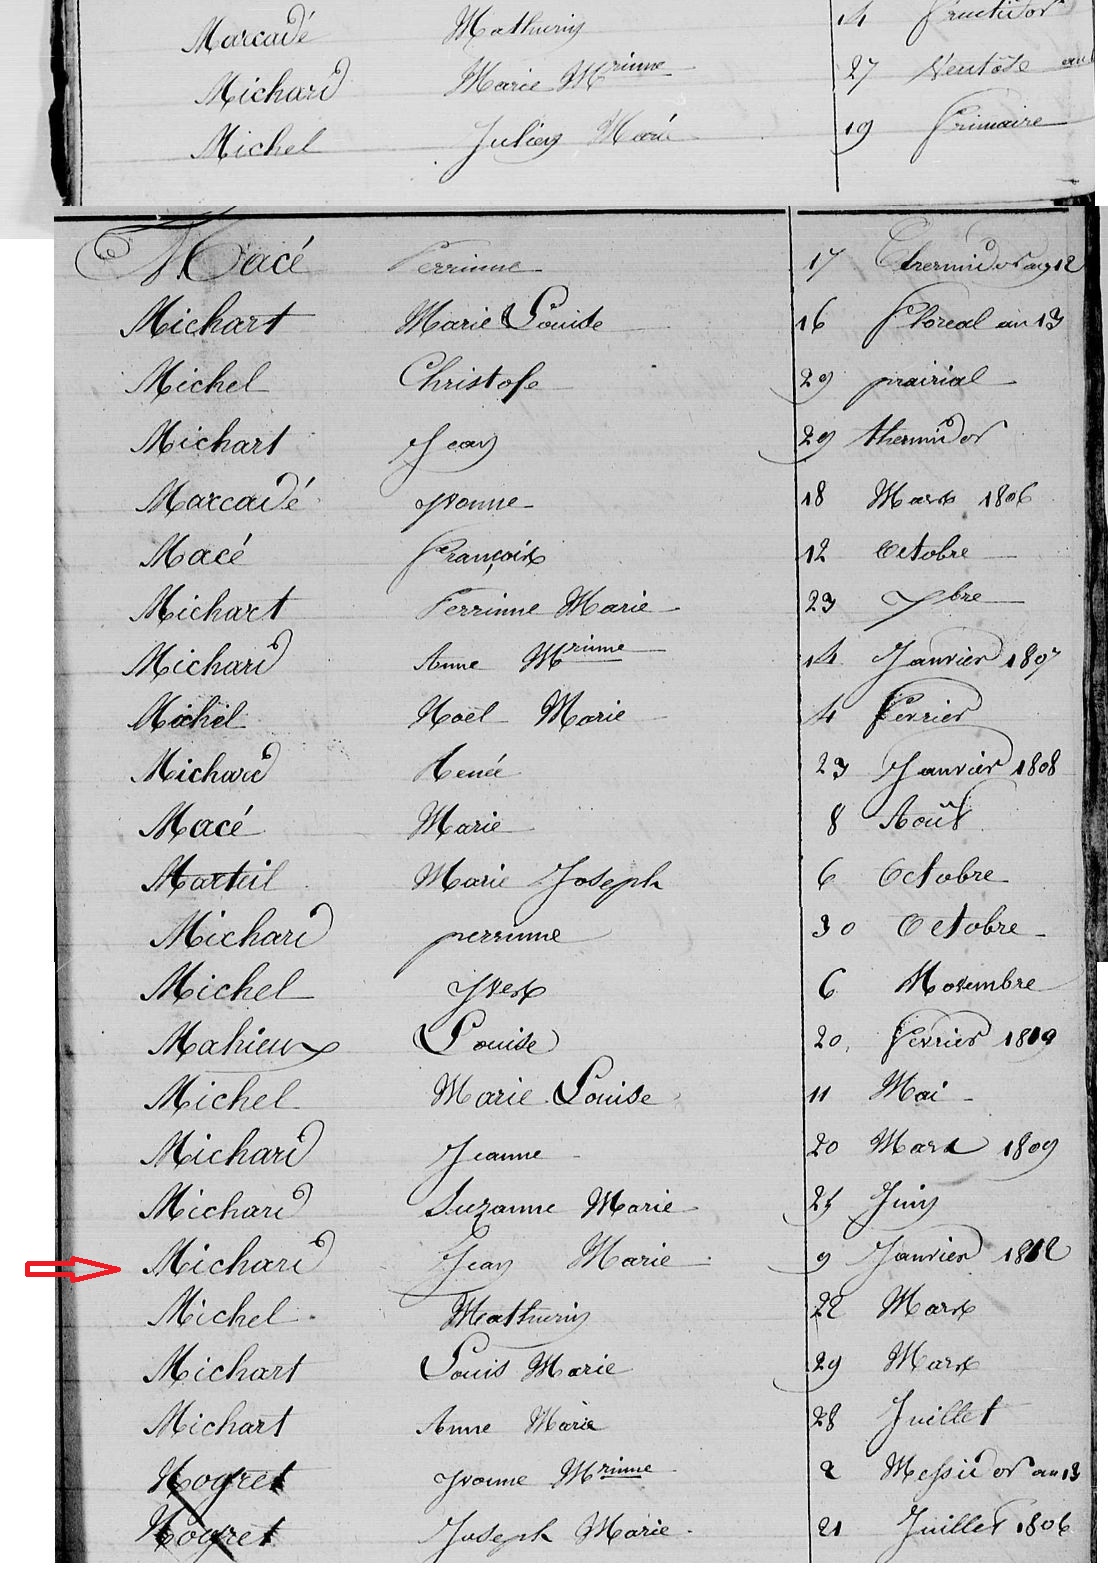 Marcadé Mathurin 14 fructidor
Michard Marie Mrinne 27 Ventôse an
Michel Julien Marie 19 frimaire
Macé Perrinne 17 Thermidor an 12
Michart Marie Louise 16 floreal an 13
Michel Christofe 29 prairial
Michart Jean 29 thermidor
Marcadé yvonne 18 Mars 1806
Macé françois 12 Octobre
Michart Perrinne Marie 23 7bre
Michard Anne Mrinne 14 Janvier 1807
Michel Noël Marie 4 fevrier
Michard Renée 23 Janvier 1808
Macé Marie 8 Août
Marteil Marie Joseph 6 Octobre
Michard perrinne 30 Octobre
Michel yves 6 Novembre
Mahieux Louise 20 fevrier
Michel Marie Louise 11 Mai
Michard Jeanne 20 Mars 1809
Michard Suzanne Marie 25 Juin
Michard Jean Marie 9 Janvier 1812
Michel Mathurin 22 Mars
Michart Louis Marie 29 Mars
Michart Anne Marie 28 Juillet
Nogret yvonne Mrinne 2 Messidor an 13
Nogret Joseph Marie 21 Juillet 1806